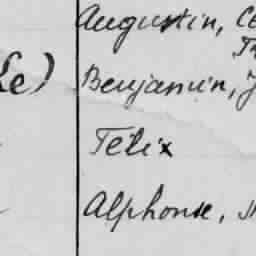 Augustin,
Le) Benjamin,
Félix
Alphonse,